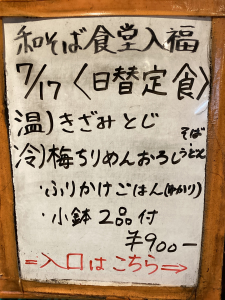 和そば食堂入福
7/17〈日替定食〉
温)きざみとじ
冷)梅ちりめんおろし そばうどん
・ふりかけごはん(ゆかり)
・小鉢2品付
¥900-
=入口はこちら⇒